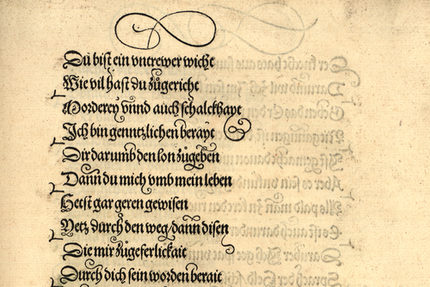 Du bist ein vntrewer wicht
Wie vil hast du zůgericht
Mordercy vnnd auch schalckhayt
Ich bin genntzlichen berayt
Dir darumb den lon zůgeben
Dann du mich vmb mein leben
Hetst gar geren gewisen
Yetz durch den weg/ dann disen
Die mir zůgeferlickait
Durch dich sein worden berait